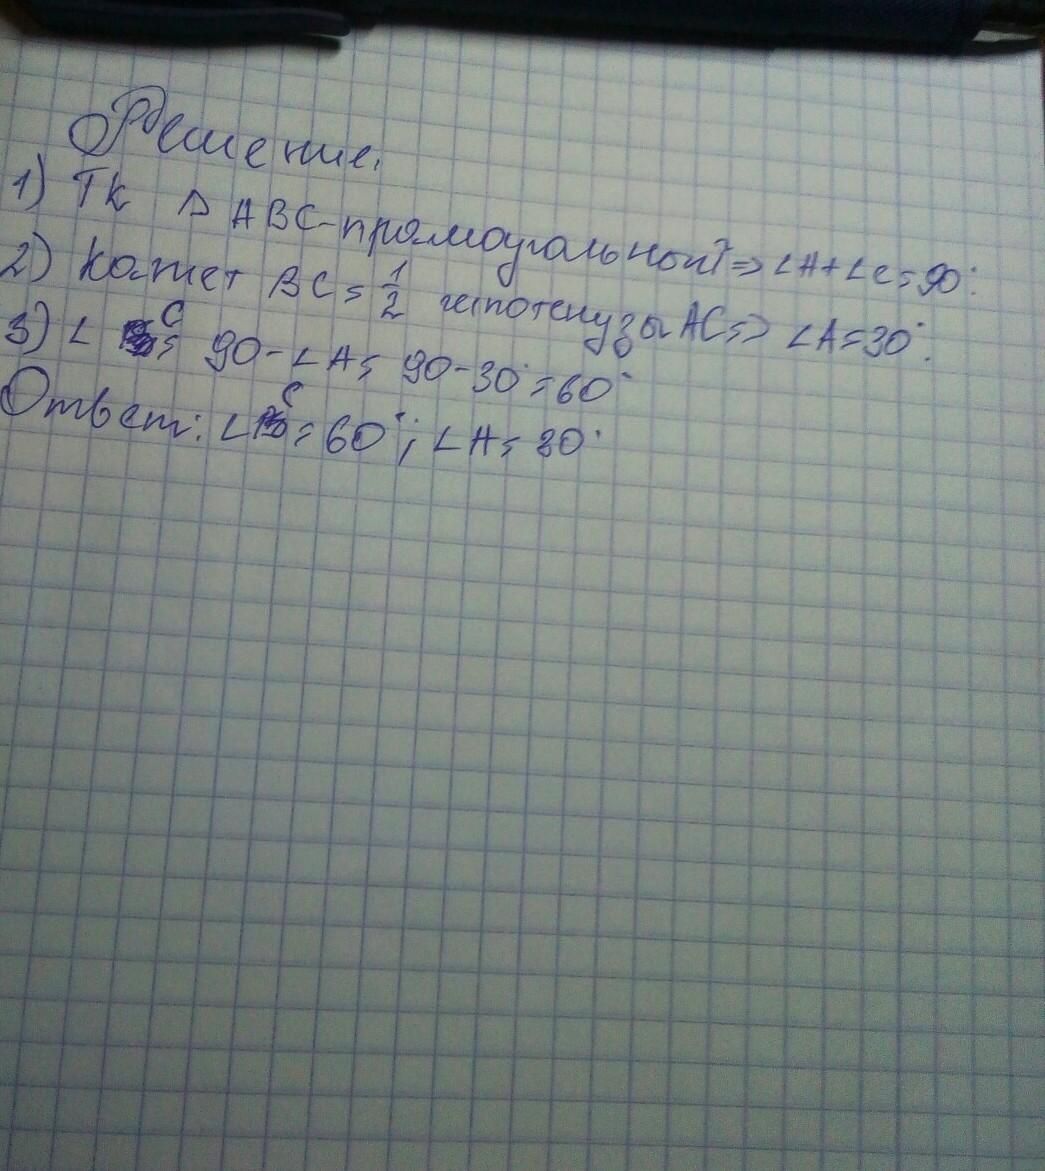 Решение.
1) Тк Δ ABC-прямоугольной => ∠A+∠C=90°.
2) Катет BC = 1/2 гипотенузы AC => ∠A=30°.
3) ∠ C = 90-∠A = 90-30°=60°
Ответ: ∠C = 60°; ∠A = 30°